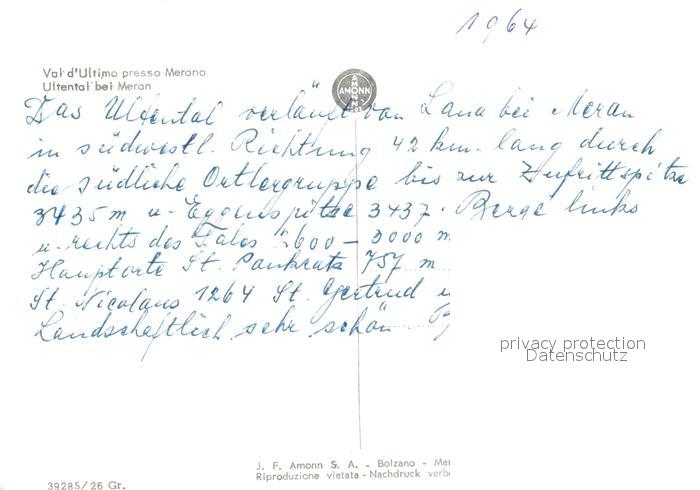 1964
Val d'Ultimo presso Merano
Ultental bei Meran
AMONN
Das Ultental verläuft von Lana bei Meran
in südwestl. Richtung 42 km. lang durch
die südliche Ortlergruppe bis zur Zufrittspitze
3435 m u. Eggenspitze 3437. Berge links
u. rechts des Tales 2600 – 3000 m
Hauptorte St. Pankratz 757 m
St. Nicolaus 1264 St. Gertrud
Landschaftlich sehr schön
privacy protection
Datenschutz
J. F. Amonn S. A. - Bolzano - Me
Riproduzione vietata - Nachdruck verb
39285/26 Gr.